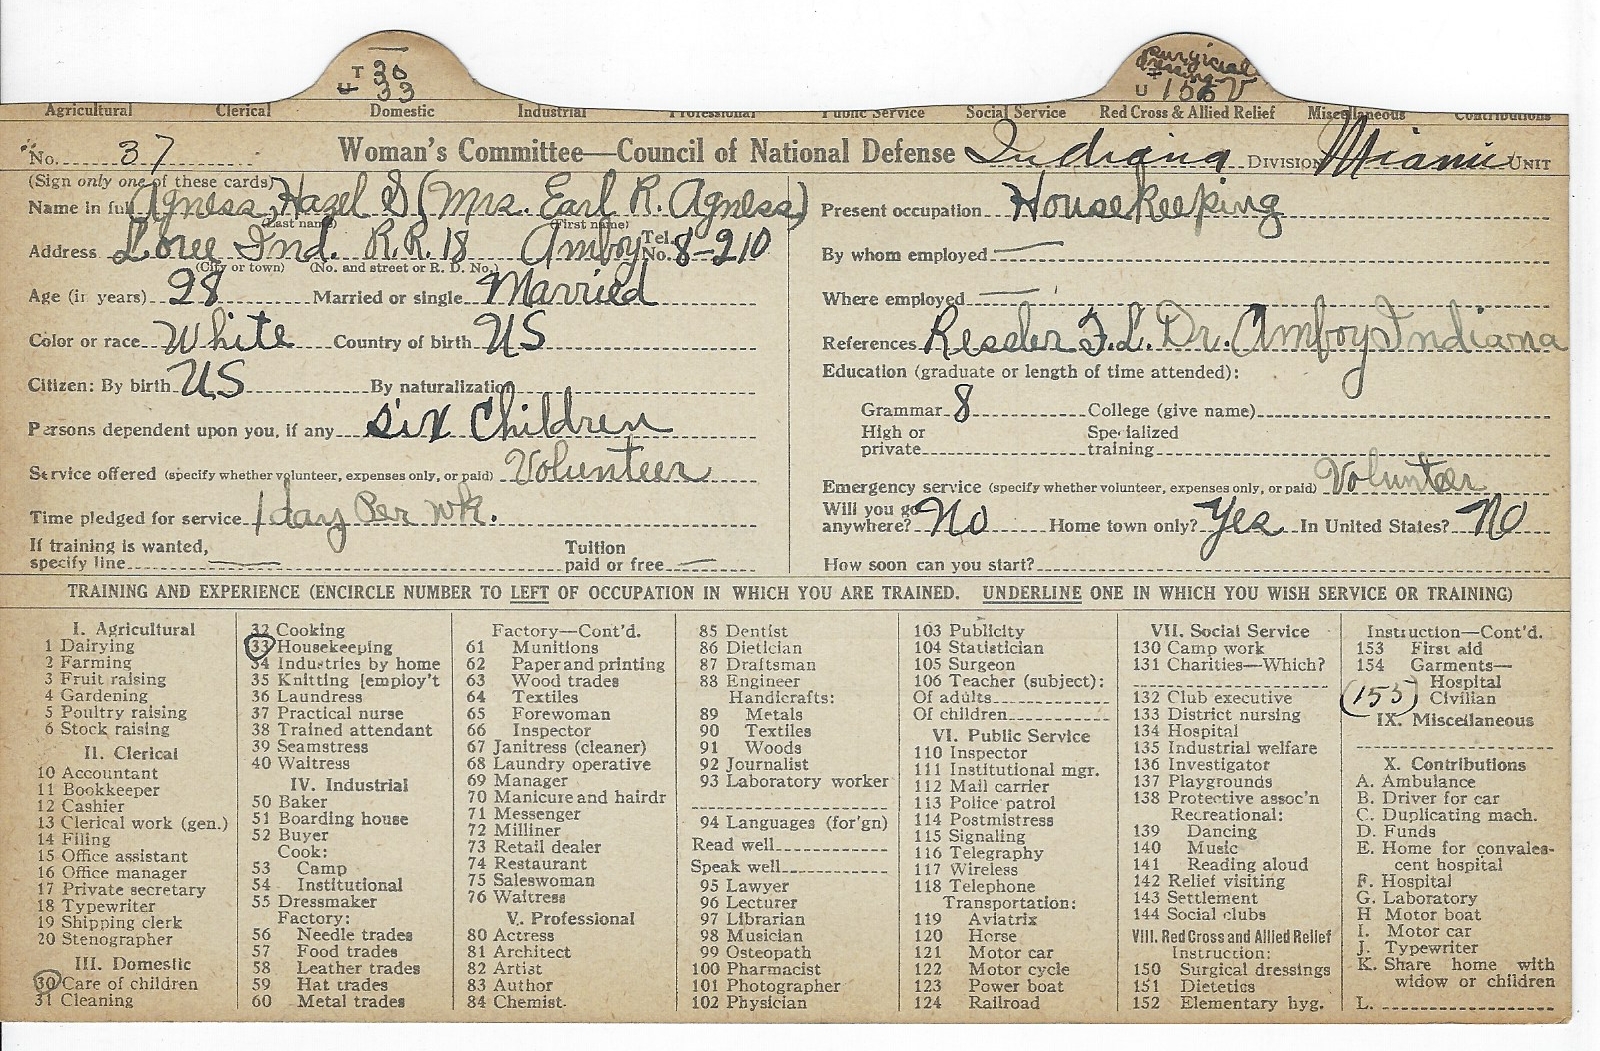 T 30
U 33
Surgical
dressing
U 155 V
Agricultural Clerical Domestic Industrial Professional Public Service Social Service Red Cross & Allied Relief Miscellaneous Contributions
No. 37 Woman's Committee—Council of National Defense Indiana DIVISION Miami UNIT
(Sign only one of these cards)
Name in full Agness, Hazel S (Mrs. Earl R. Agness)
(Last name) (First name)
Address Loree Ind. R.R. 18 Amboy Tel. No. 8-210
(City or town) (No. and street or R. D. No.)
Age (in years) 28 Married or single Married
Color or race White Country of birth US
Citizen: By birth US By naturalization
Persons dependent upon you, if any six Children
Service offered (specify whether volunteer, expenses only, or paid) Volunteer
Time pledged for service 1 day Per wk.
If training is wanted, specify line Tuition paid or free
Present occupation Housekeeping
By whom employed
Where employed
References Ressler F. L. Dr. Amboy Indiana
Education (graduate or length of time attended):
Grammar 8 College (give name)
High or private Specialized training
Emergency service (specify whether volunteer, expenses only, or paid) Volunteer
Will you go anywhere? No Home town only? Yes In United States? No
How soon can you start?
TRAINING AND EXPERIENCE (ENCIRCLE NUMBER TO LEFT OF OCCUPATION IN WHICH YOU ARE TRAINED. UNDERLINE ONE IN WHICH YOU WISH SERVICE OR TRAINING)
I. Agricultural
1 Dairying
2 Farming
3 Fruit raising
4 Gardening
5 Poultry raising
6 Stock raising
II. Clerical
10 Accountant
11 Bookkeeper
12 Cashier
13 Clerical work (gen.)
14 Filing
15 Office assistant
16 Office manager
17 Private secretary
18 Typewriter
19 Shipping clerk
20 Stenographer
III. Domestic
30 Care of children
31 Cleaning
32 Cooking
33 Housekeeping
34 Industries by home
35 Knitting [employ't
36 Laundress
37 Practical nurse
38 Trained attendant
39 Seamstress
40 Waitress
IV. Industrial
50 Baker
51 Boarding house
52 Buyer
Cook:
53 Camp
54 Institutional
55 Dressmaker
Factory:
56 Needle trades
57 Food trades
58 Leather trades
59 Hat trades
60 Metal trades
Factory—Cont'd.
61 Munitions
62 Paper and printing
63 Wood trades
64 Textiles
65 Forewoman
66 Inspector
67 Janitress (cleaner)
68 Laundry operative
69 Manager
70 Manicure and hairdr
71 Messenger
72 Milliner
73 Retail dealer
74 Restaurant
75 Saleswoman
76 Waitress
V. Professional
80 Actress
81 Architect
82 Artist
83 Author
84 Chemist
85 Dentist
86 Dietician
87 Draftsman
88 Engineer
Handicrafts:
89 Metals
90 Textiles
91 Woods
92 Journalist
93 Laboratory worker
94 Languages (for'gn)
Read well
Speak well
95 Lawyer
96 Lecturer
97 Librarian
98 Musician
99 Osteopath
100 Pharmacist
101 Photographer
102 Physician
103 Publicity
104 Statistician
105 Surgeon
106 Teacher (subject):
Of adults
Of children
VI. Public Service
110 Inspector
111 Institutional mgr.
112 Mail carrier
113 Police patrol
114 Postmistress
115 Signaling
116 Telegraphy
117 Wireless
118 Telephone
Transportation:
119 Aviatrix
120 Horse
121 Motor car
122 Motor cycle
123 Power boat
124 Railroad
VII. Social Service
130 Camp work
131 Charities—Which?
132 Club executive
133 District nursing
134 Hospital
135 Industrial welfare
136 Investigator
137 Playgrounds
138 Protective assoc'n
Recreational:
139 Dancing
140 Music
141 Reading aloud
142 Relief visiting
143 Settlement
144 Social clubs
VIII. Red Cross and Allied Relief
Instruction:
150 Surgical dressings
151 Dietetics
152 Elementary hyg.
Instruction—Cont'd.
153 First aid
154 Garments—
Hospital
(155) Civilian
IX. Miscellaneous
X. Contributions
A. Ambulance
B. Driver for car
C. Duplicating mach.
D. Funds
E. Home for convales-
cent hospital
F. Hospital
G. Laboratory
H Motor boat
I. Motor car
J. Typewriter
K. Share home with
widow or children
L.